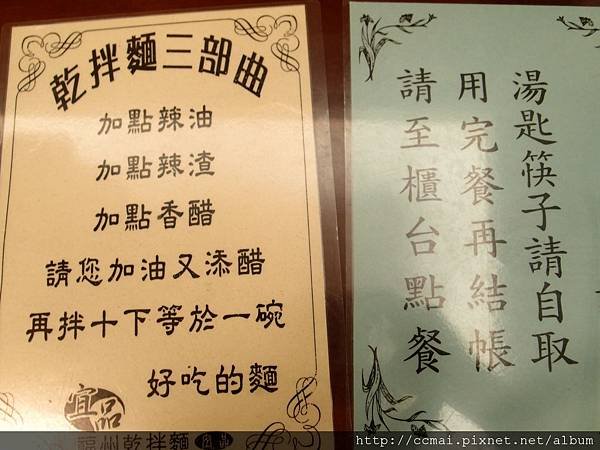 乾拌麵三部曲
加點辣油
加點辣渣
加點香醋
請您加油又添醋
再拌十下等於一碗
好吃的麵
宜品
福州乾拌麵
湯匙筷子請自取
用完餐再結帳
請至櫃台點餐
http://ccmai.pixnet.net/album